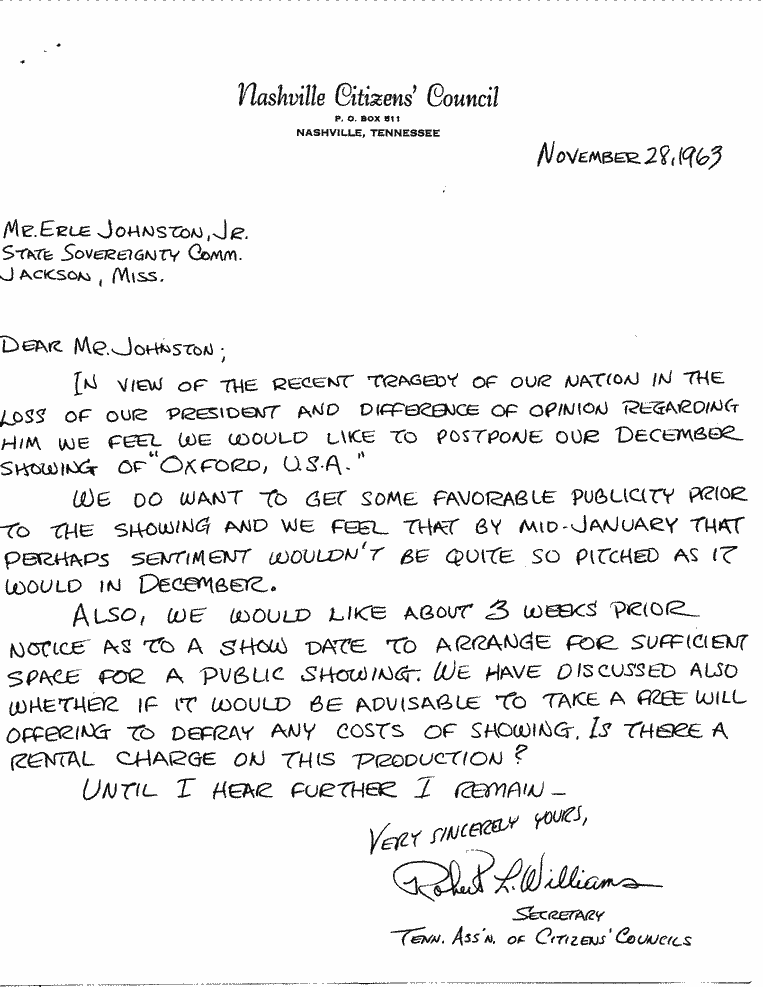 Nashville Citizens' Council
P. O. BOX 811
NASHVILLE, TENNESSEE
NOVEMBER 28, 1963
MR. ERLE JOHNSTON, JR.
STATE SOVEREIGNTY COMM.
JACKSON, MISS.
DEAR MR. JOHNSTON;
IN VIEW OF THE RECENT TRAGEDY OF OUR NATION IN THE
LOSS OF OUR PRESIDENT AND DIFFERENCE OF OPINION REGARDING
HIM WE FEEL WE WOULD LIKE TO POSTPONE OUR DECEMBER
SHOWING OF "OXFORD, U.S.A."
WE DO WANT TO GET SOME FAVORABLE PUBLICITY PRIOR
TO THE SHOWING AND WE FEEL THAT BY MID-JANUARY THAT
PERHAPS SENTIMENT WOULDN'T BE QUITE SO PITCHED AS IT
WOULD IN DECEMBER.
ALSO, WE WOULD LIKE ABOUT 3 WEEKS PRIOR
NOTICE AS TO A SHOW DATE TO ARRANGE FOR SUFFICIENT
SPACE FOR A PUBLIC SHOWING. WE HAVE DISCUSSED ALSO
WHETHER IF IT WOULD BE ADVISABLE TO TAKE A FREE WILL
OFFERING TO DEFRAY ANY COSTS OF SHOWING. IS THERE A
RENTAL CHARGE ON THIS PRODUCTION?
UNTIL I HEAR FURTHER I REMAIN -
VERY SINCERELY YOURS,
Robert L. Williams
SECRETARY
TENN. ASS'N. OF CITIZENS' COUNCILS